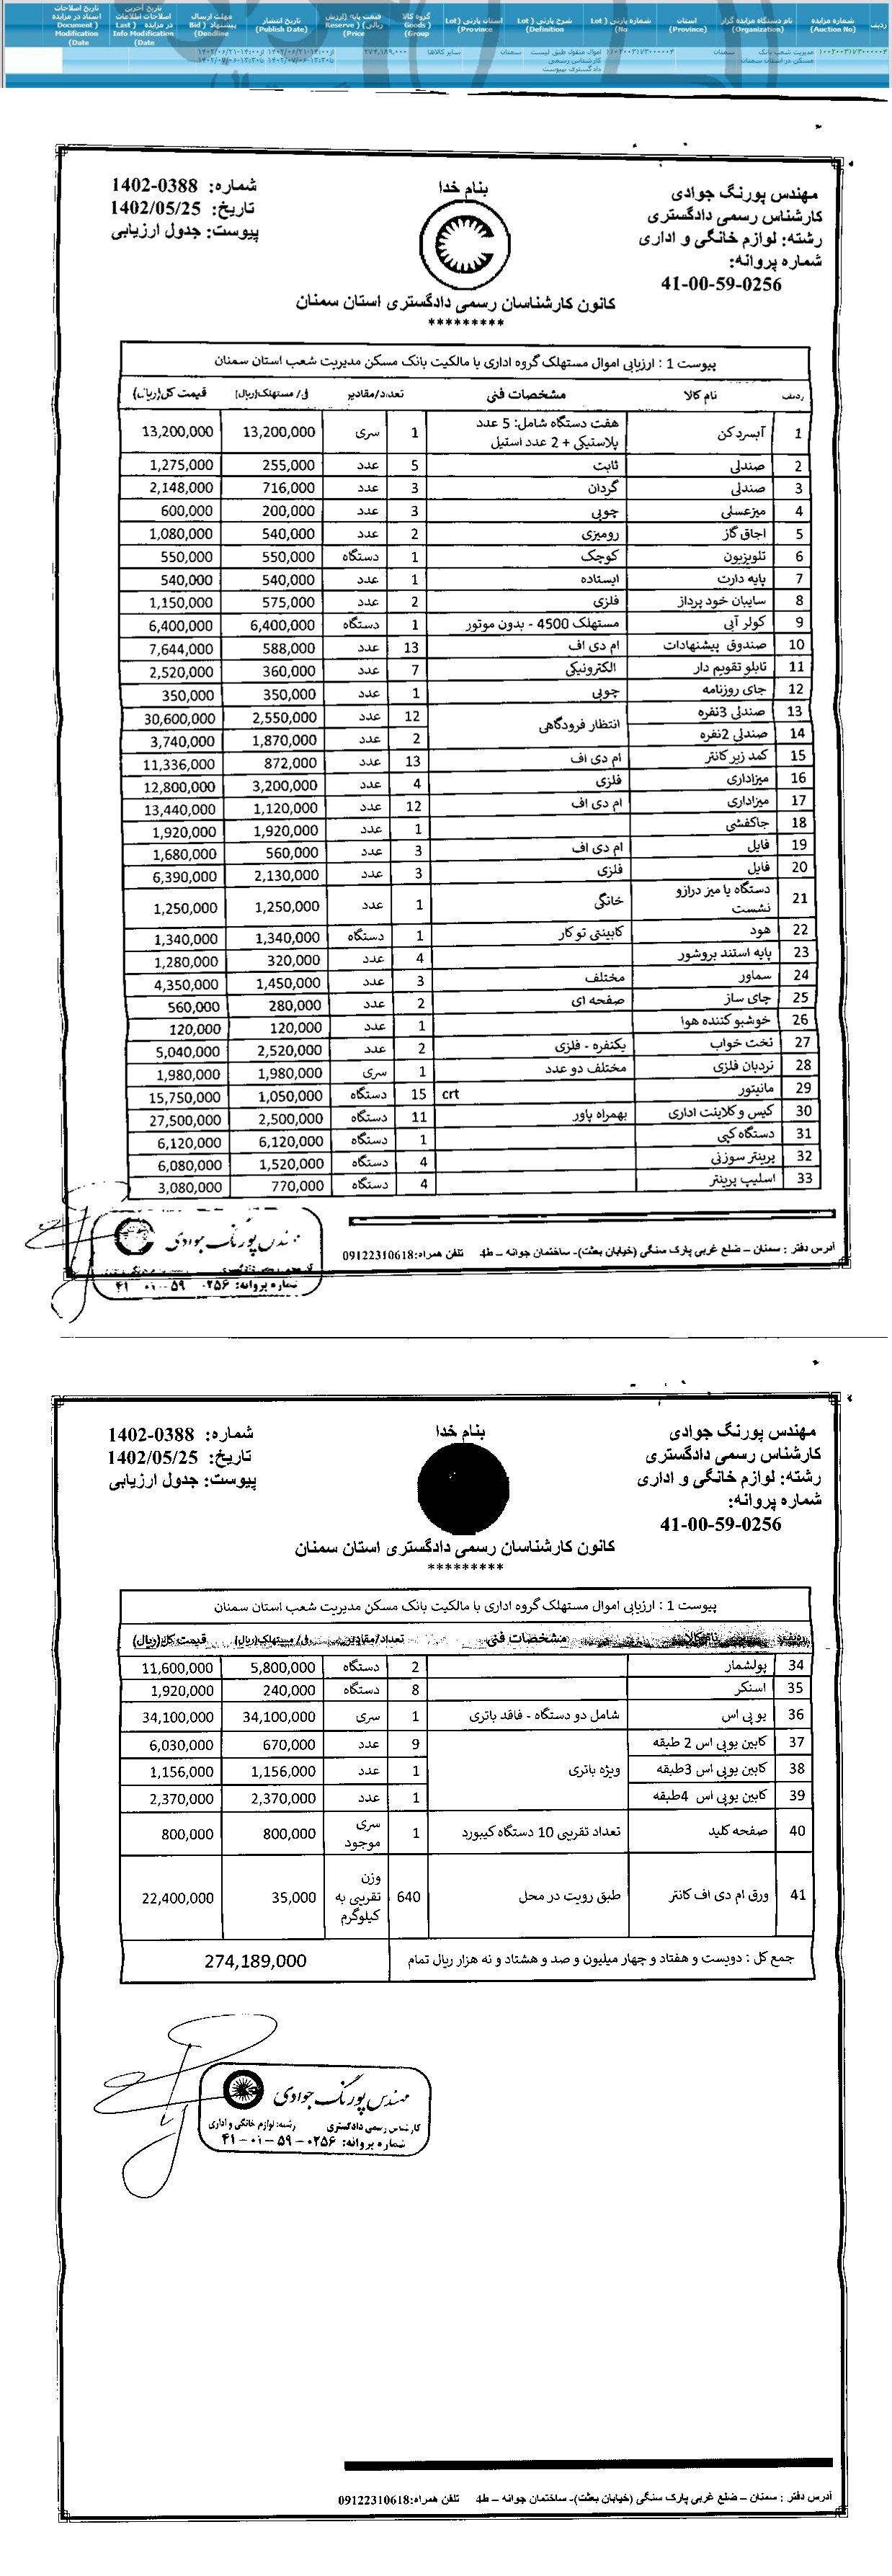 ردیف
شماره مزایده (Auction No)
نام دستگاه مزایده گزار (Organization)
استان (Province)
شماره پارتی ( Lot No)
شرح پارتی ( Lot Definition)
استان پارتی ( Lot Province)
گروه کالا ( Goods Group)
قیمت پایه (ارزش ریالی) ( Reserve Price)
تاریخ انتشار (Publish Date)
مهلت ارسال پیشنهاد ( Bid Deadline)
تاریخ آخرین اصلاحات اطلاعات در مزایده ( Last Info Modification Date)
تاریخ اصلاحات اسناد در مزایده ( Document Modification Date)
مدیریت شعب بانک مسکن در استان سمنان
سمنان
اموال منقول طبق لیست کارشناس رسمی دادگستری پیوست
سمنان
سایر کالاها
۲۷۴,۱۸۹,۰۰۰
مهندس پورنگ جوادی
کارشناس رسمی دادگستری
رشته: لوازم خانگی و اداری
شماره پروانه:
41-00-59-0256
بنام خدا
کانون کارشناسان رسمی دادگستری استان سمنان
*********
شماره: 1402-0388
تاریخ: 1402/05/25
پیوست: جدول ارزیابی
پیوست 1 : ارزیابی اموال مستهلک گروه اداری با مالکیت بانک مسکن مدیریت شعب استان سمنان
ردیف نام کالا مشخصات فنی تعداد/مقادیر فی/ مستهلک(ریال) قیمت کل(ریال)
1 آبسردکن هفت دستگاه شامل: 5 عدد پلاستیکی + 2 عدد استیل 1 سری 13,200,000 13,200,000
2 صندلی ثابت 5 عدد 255,000 1,275,000
3 صندلی گردان 3 عدد 716,000 2,148,000
4 میزعسلی چوبی 3 عدد 200,000 600,000
5 اجاق گاز رومیزی 2 عدد 540,000 1,080,000
6 تلویزیون کوچک 1 دستگاه 550,000 550,000
7 پایه دارت ایستاده 1 عدد 540,000 540,000
8 سایبان خود پرداز فلزی 2 عدد 575,000 1,150,000
9 کولر آبی مستهلک 4500 - بدون موتور 1 دستگاه 6,400,000 6,400,000
10 صندوق پیشنهادات ام دی اف 13 عدد 588,000 7,644,000
11 تابلو تقویم دار الکترونیکی 7 عدد 360,000 2,520,000
12 جای روزنامه چوبی 1 عدد 350,000 350,000
13 صندلی 3نفره انتظار فرودگاهی 12 عدد 2,550,000 30,600,000
14 صندلی 2نفره 2 عدد 1,870,000 3,740,000
15 کمد زیر کانتر ام دی اف 13 عدد 872,000 11,336,000
16 میزاداری فلزی 4 عدد 3,200,000 12,800,000
17 میزاداری ام دی اف 12 عدد 1,120,000 13,440,000
18 جاکفشی 1 عدد 1,920,000 1,920,000
19 فایل ام دی اف 3 عدد 560,000 1,680,000
20 فایل فلزی 3 عدد 2,130,000 6,390,000
21 دستگاه یا میز درازو نشست خانگی 1 عدد 1,250,000 1,250,000
22 هود کابینتی تو کار 1 دستگاه 1,340,000 1,340,000
23 پایه استند بروشور 4 عدد 320,000 1,280,000
24 سماور مختلف 3 عدد 1,450,000 4,350,000
25 چای ساز صفحه ای 2 عدد 280,000 560,000
26 خوشبو کننده هوا 1 عدد 120,000 120,000
27 تخت خواب یکنفره - فلزی 2 عدد 2,520,000 5,040,000
28 نردبان فلزی مختلف دو عدد 1 سری 1,980,000 1,980,000
29 مانیتور crt 15 دستگاه 1,050,000 15,750,000
30 کیس و کلاینت اداری بهمراه پاور 11 دستگاه 2,500,000 27,500,000
31 دستگاه کپی 1 دستگاه 6,120,000 6,120,000
32 پرینتر سوزنی 4 دستگاه 1,520,000 6,080,000
33 اسلیپ پرینتر 4 دستگاه 770,000 3,080,000
مهندس پورنگ جوادی
شماره پروانه: ۰۲۵۶-۵۹-۰۱-۴۱
آدرس دفتر : سمنان – ضلع غربی پارک سنگی (خیابان بعثت)- ساختمان جوانه – ط4 تلفن همراه:09122310618
مهندس پورنگ جوادی
کارشناس رسمی دادگستری
رشته: لوازم خانگی و اداری
شماره پروانه:
41-00-59-0256
بنام خدا
کانون کارشناسان رسمی دادگستری استان سمنان
*********
شماره: 1402-0388
تاریخ: 1402/05/25
پیوست: جدول ارزیابی
پیوست 1 : ارزیابی اموال مستهلک گروه اداری با مالکیت بانک مسکن مدیریت شعب استان سمنان
ردیف نام کالا مشخصات فنی تعداد/مقادیر فی/ مستهلک(ریال) قیمت کل(ریال)
34 پولشمار 2 دستگاه 5,800,000 11,600,000
35 اسنکر 8 دستگاه 240,000 1,920,000
36 یو پی اس شامل دو دستگاه - فاقد باتری 1 سری 34,100,000 34,100,000
37 کابین یوپی اس 2 طبقه ویژه باتری 9 عدد 670,000 6,030,000
38 کابین یوپی اس 3طبقه 1 عدد 1,156,000 1,156,000
39 کابین یوپی اس 4طبقه 1 عدد 2,370,000 2,370,000
40 صفحه کلید تعداد تقریبی 10 دستگاه کیبورد 1 سری موجود 800,000 800,000
41 ورق ام دی اف کانتر طبق رویت در محل 640 وزن تقریبی به کیلوگرم 35,000 22,400,000
جمع کل : دویست و هفتاد و چهار میلیون و صد و هشتاد و نه هزار ریال تمام 274,189,000
مهندس پورنگ جوادی
کارشناس رسمی دادگستری رشته: لوازم خانگی و اداری
شماره پروانه: ۰۲۵۶-۵۹-۰۱-۴۱
آدرس دفتر : سمنان – ضلع غربی پارک سنگی (خیابان بعثت)- ساختمان جوانه – ط4 تلفن همراه:09122310618